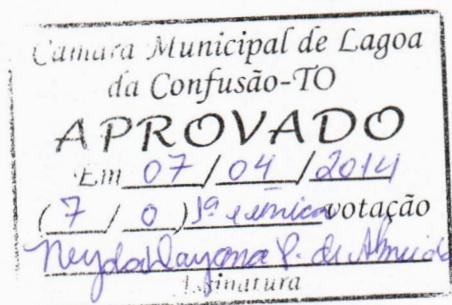 Câmara Municipal de Lagoa
da Confusão-TO
APROVADO
Em 07/04/2014
(7/0) 1ª e única votação
Neyda Dayana P. de Almeida
Assinatura